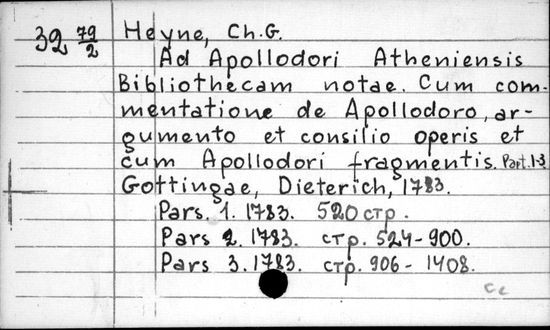 32 79/2
Heyne, Ch.G.
Ad Apollodori Atheniensis
Bibliothecam notae. Cum com-
mentatione de Apollodoro, ar-
gumento et consilio operis et
cum Apollodori fragmentis. Part. 1-3
Gottingae, Dieterich, 1783.
Pars. 1. 1783. 520 стр.
Pars 2. 1783. стр. 524-900.
Pars 3. 1783. стр. 906-1408.